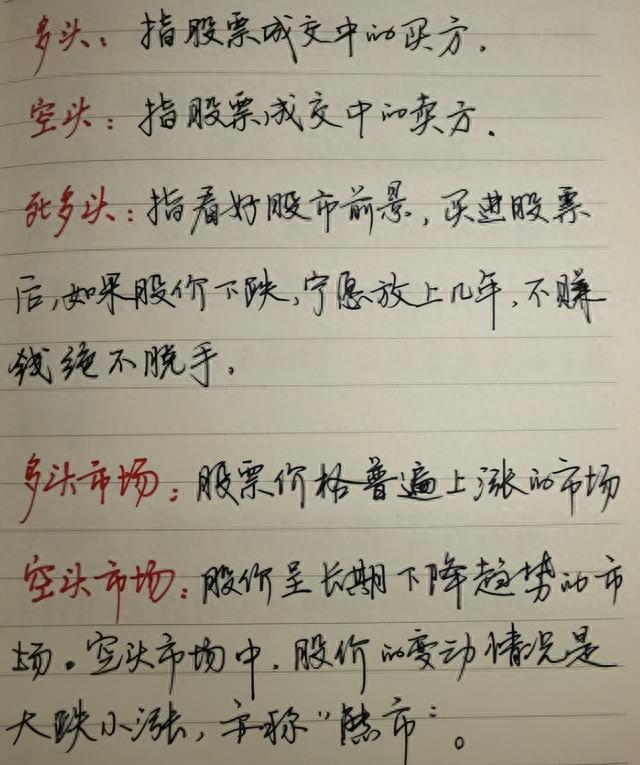 多头：指股票成交中的买方。
空头：指股票成交中的卖方.
死多头：指看好股市前景，买进股票
后，如果股价下跌，宁愿放上几年，不赚
钱绝不脱手。
多头市场：股票价格普遍上涨的市场
空头市场：股价呈长期下降趋势的市
场。空头市场中，股价的变动情况是
大跌小涨，亦称“熊市”。